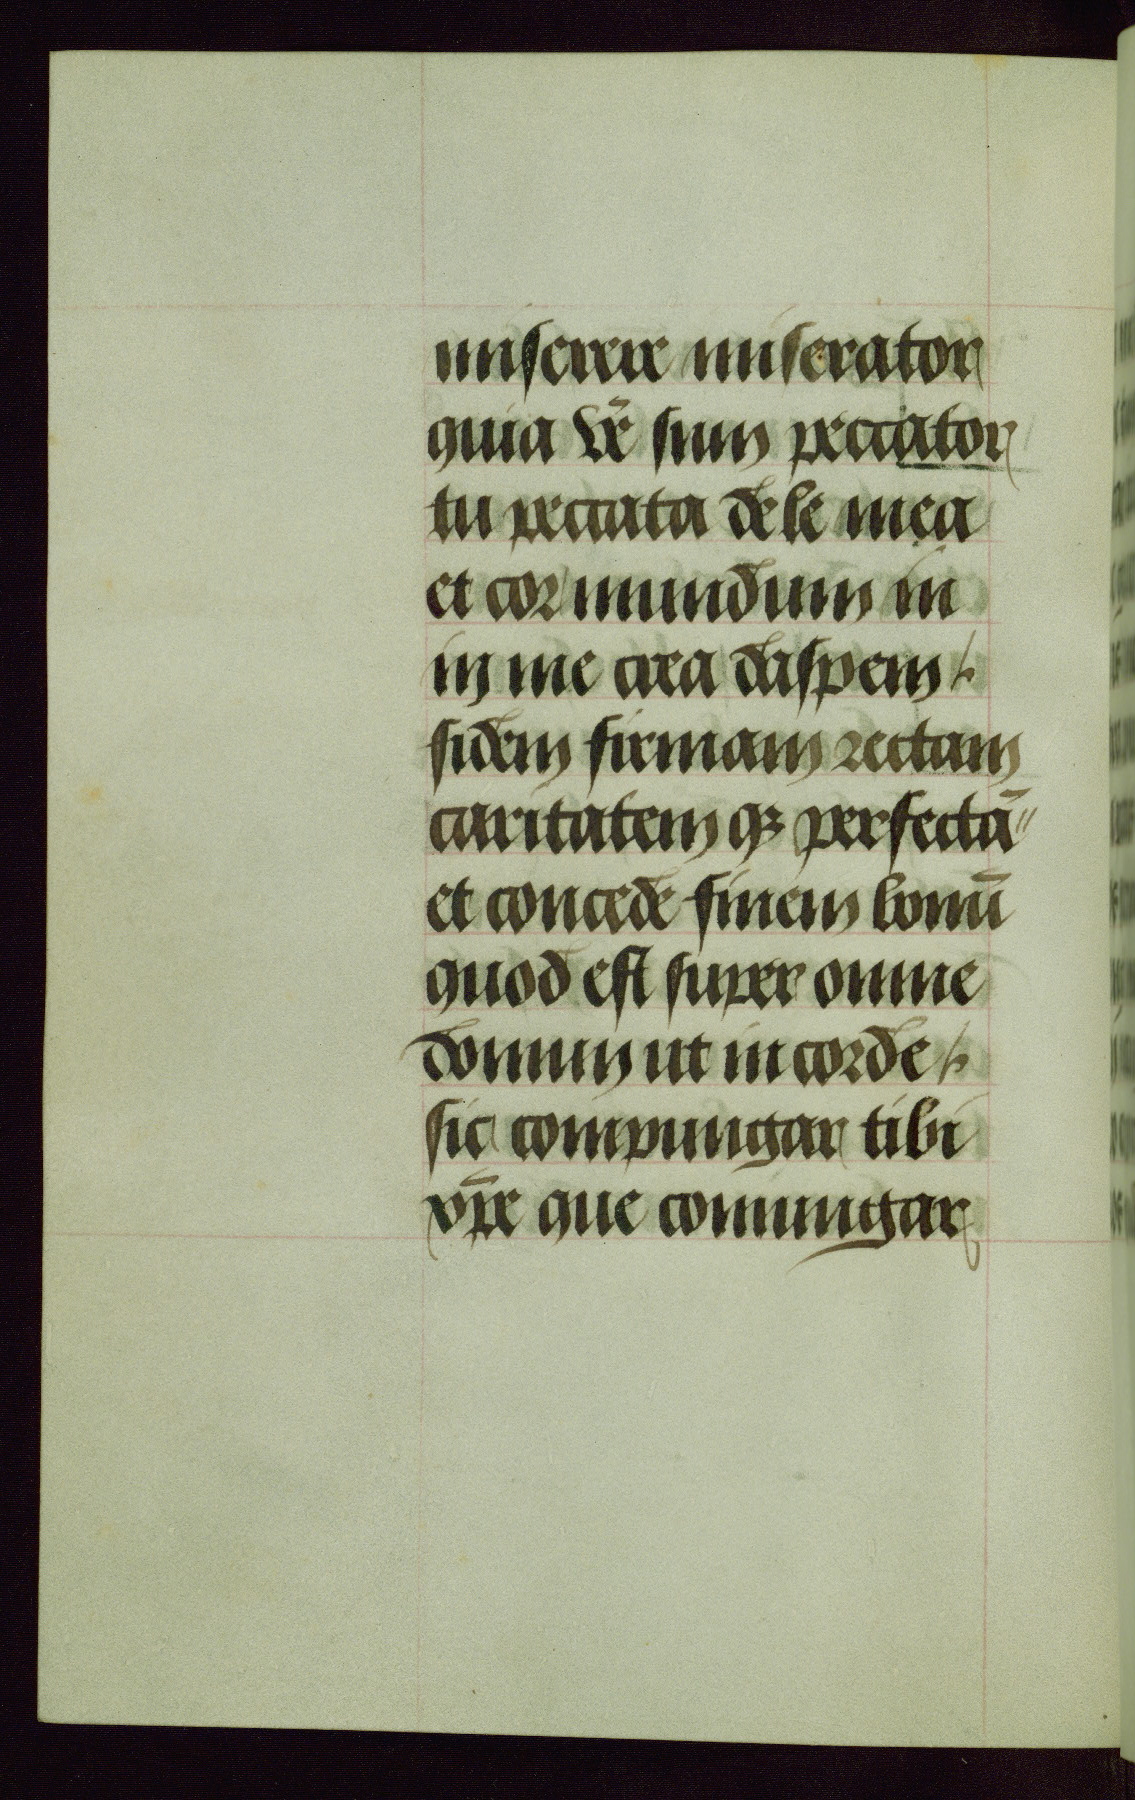 miserere miserator
quia vē sum peccator
tu peccata dele mea
et cor mundum in
in me crea da spem
fidem firmam rectam
caritatem qꝫ perfectā
et concede finem bonū
quod est super omne
donum ut in corde
sic compungar tibi
xp̄e que coniungar